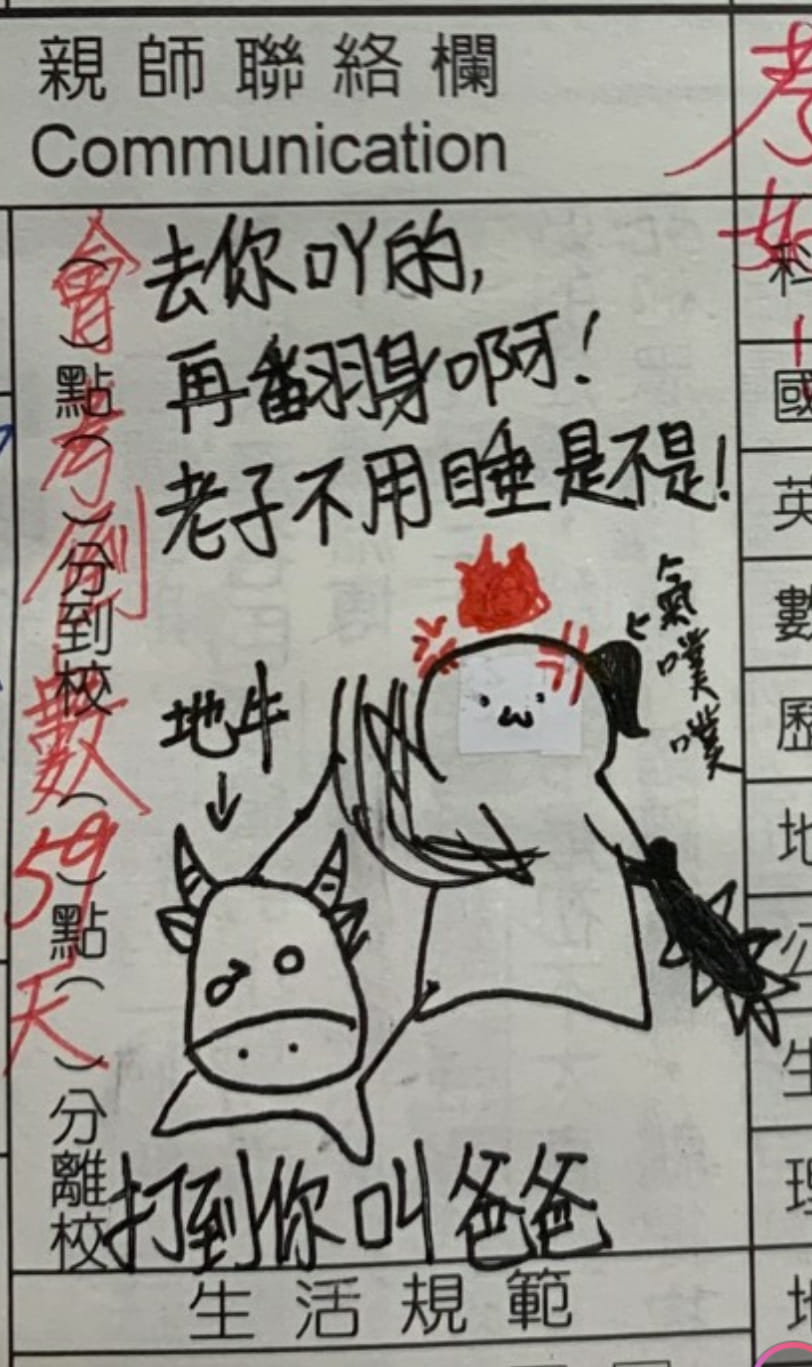 親師聯絡欄
Communication
去你吖的,
再翻身啊!
老子不用睡是不是!
氣噗噗
地牛
打到你叫爸爸
會考倒數59天
( )點( )分到校
( )點( )分離校
生活規範
考
如
科
國
英
數
歷
地
公
生
理
地